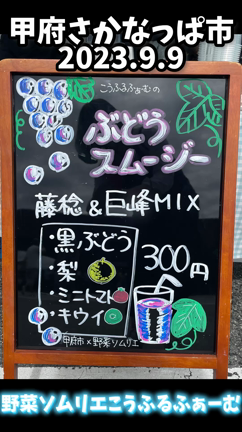 甲府さかなっぱ市
2023.9.9
こうふるふぁーむの
ぶどう
スムージー
藤稔&巨峰MIX
・黒ぶどう
・梨
・ミニトマト
・キウイ
300円
甲府市×野菜ソムリエ
野菜ソムリエこうふるふぁーむ